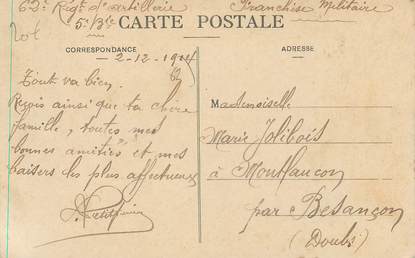 62e Regt d'artillerie
Franchise Militaire
5e Bie
CARTE POSTALE
CORRESPONDANCE
ADRESSE
2-12-1914
Tout va bien.
Reçois ainsi que ta chère
famille, toutes mes
bonnes amitiés et mes
baisers les plus affectueux
Mademoiselle
Marie Jolibois
à Montfaucon
par Besançon
(Doubs)